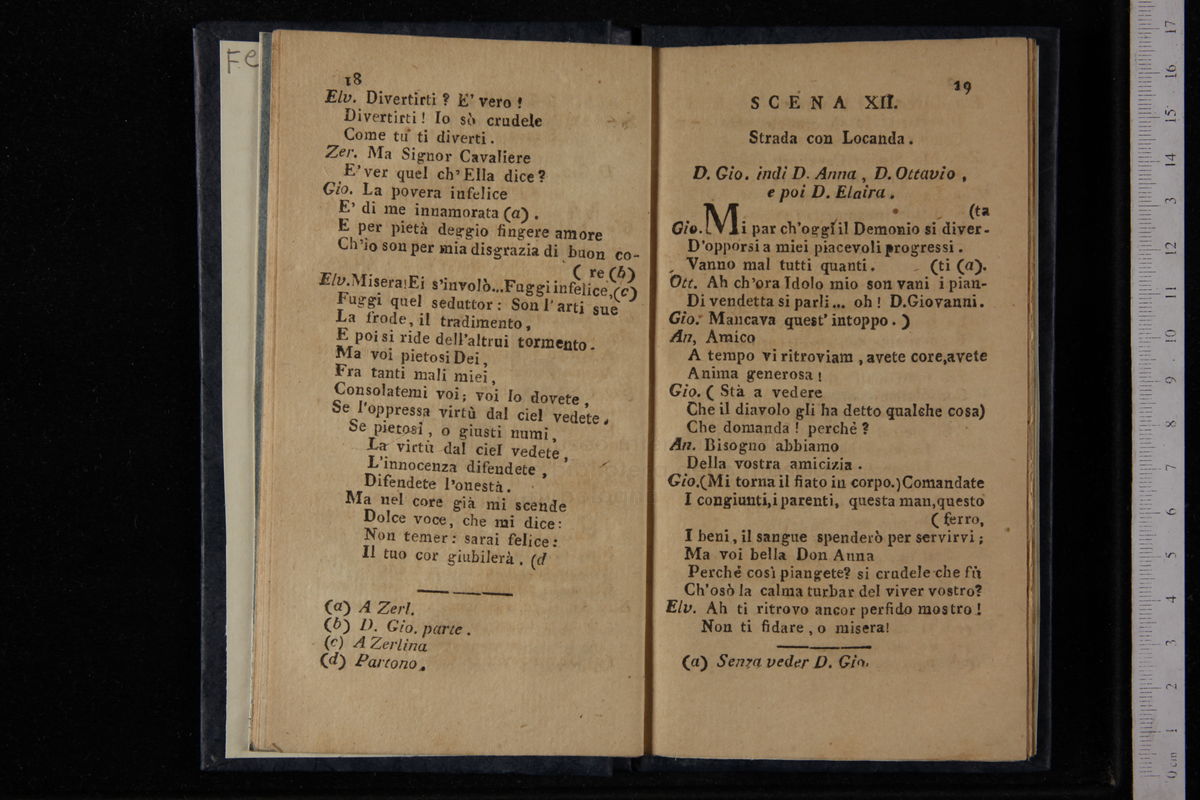 Fe
18
Elv. Divertirti ? E' vero !
Divertirti ! Io sò crudele
Come tu ti diverti .
Zer. Ma Signor Cavaliere
E' ver quel ch' Ella dice ?
Gio. La povera infelice
E' di me innamorata (a) .
E per pietà deggio fingere amore
Ch'io son per mia disgrazia di buon co-
( re (b)
Elv. Misera! Ei s'involò... Fuggi infelice, (c)
Fuggi quel seduttor : Son l' arti sue
La frode, il tradimento,
E poi si ride dell'altrui tormento .
Ma voi pietosi Dei,
Fra tanti mali miei,
Consolatemi voi; voi lo dovete,
Se l'oppressa virtù dal ciel vedete.
Se pietosi, o giusti numi,
La virtù dal ciel vedete,
L'innocenza difendete,
Difendete l'onestà.
Ma nel core già mi scende
Dolce voce, che mi dice:
Non temer: sarai felice:
Il tuo cor giubilerà. (d
(a) A Zerl.
(b) D. Gio. parte.
(c) A Zerlina
(d) Partono.
19
SCENA XII.
Strada con Locanda.
D. Gio. indi D. Anna, D. Ottavio,
e poi D. Elaira.
(ta
Gio. Mi par ch'oggi il Demonio si diver-
D'opporsi a miei piacevoli progressi.
Vanno mal tutti quanti. (ti (a).
Ott. Ah ch'ora Idolo mio son vani i pian-
Di vendetta si parli... oh ! D.Giovanni.
Gio. Mancava quest' intoppo. )
An, Amico
A tempo vi ritroviam, avete core, avete
Anima generosa !
Gio. ( Stà a vedere
Che il diavolo gli ha detto qualche cosa)
Che domanda ! perchè ?
An. Bisogno abbiamo
Della vostra amicizia.
Gio. (Mi torna il fiato in corpo.) Comandate
I congiunti, i parenti, questa man, questo
( ferro,
I beni, il sangue spenderò per servirvi ;
Ma voi bella Don Anna
Perchè così piangete? si crudele che fù
Ch'osò la calma turbar del viver vostro?
Elv. Ah ti ritrovo ancor perfido mostro !
Non ti fidare, o misera!
(a) Senza veder D. Gio.
0 cm 1 2 3 4 5 6 7 8 9 10 11 12 13 14 15 16 17